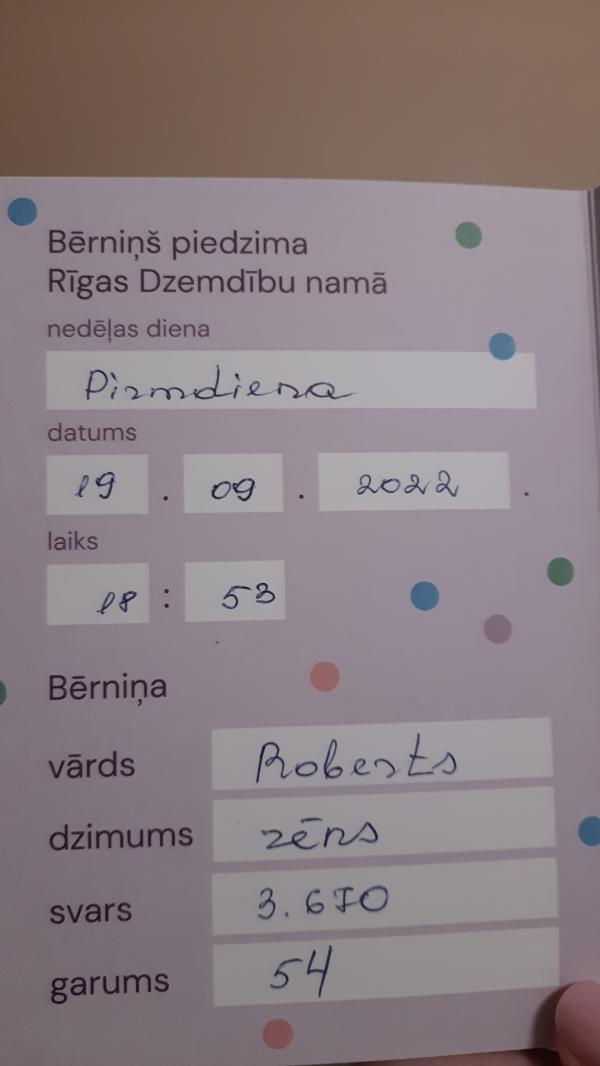 Bērniņš piedzima
Rīgas Dzemdību namā
nedēļas diena
Pirmdiena
datums
19 . 09 . 2022 .
laiks
18 : 53
Bērniņa
vārds Roberts
dzimums zēns
svars 3.670
garums 54